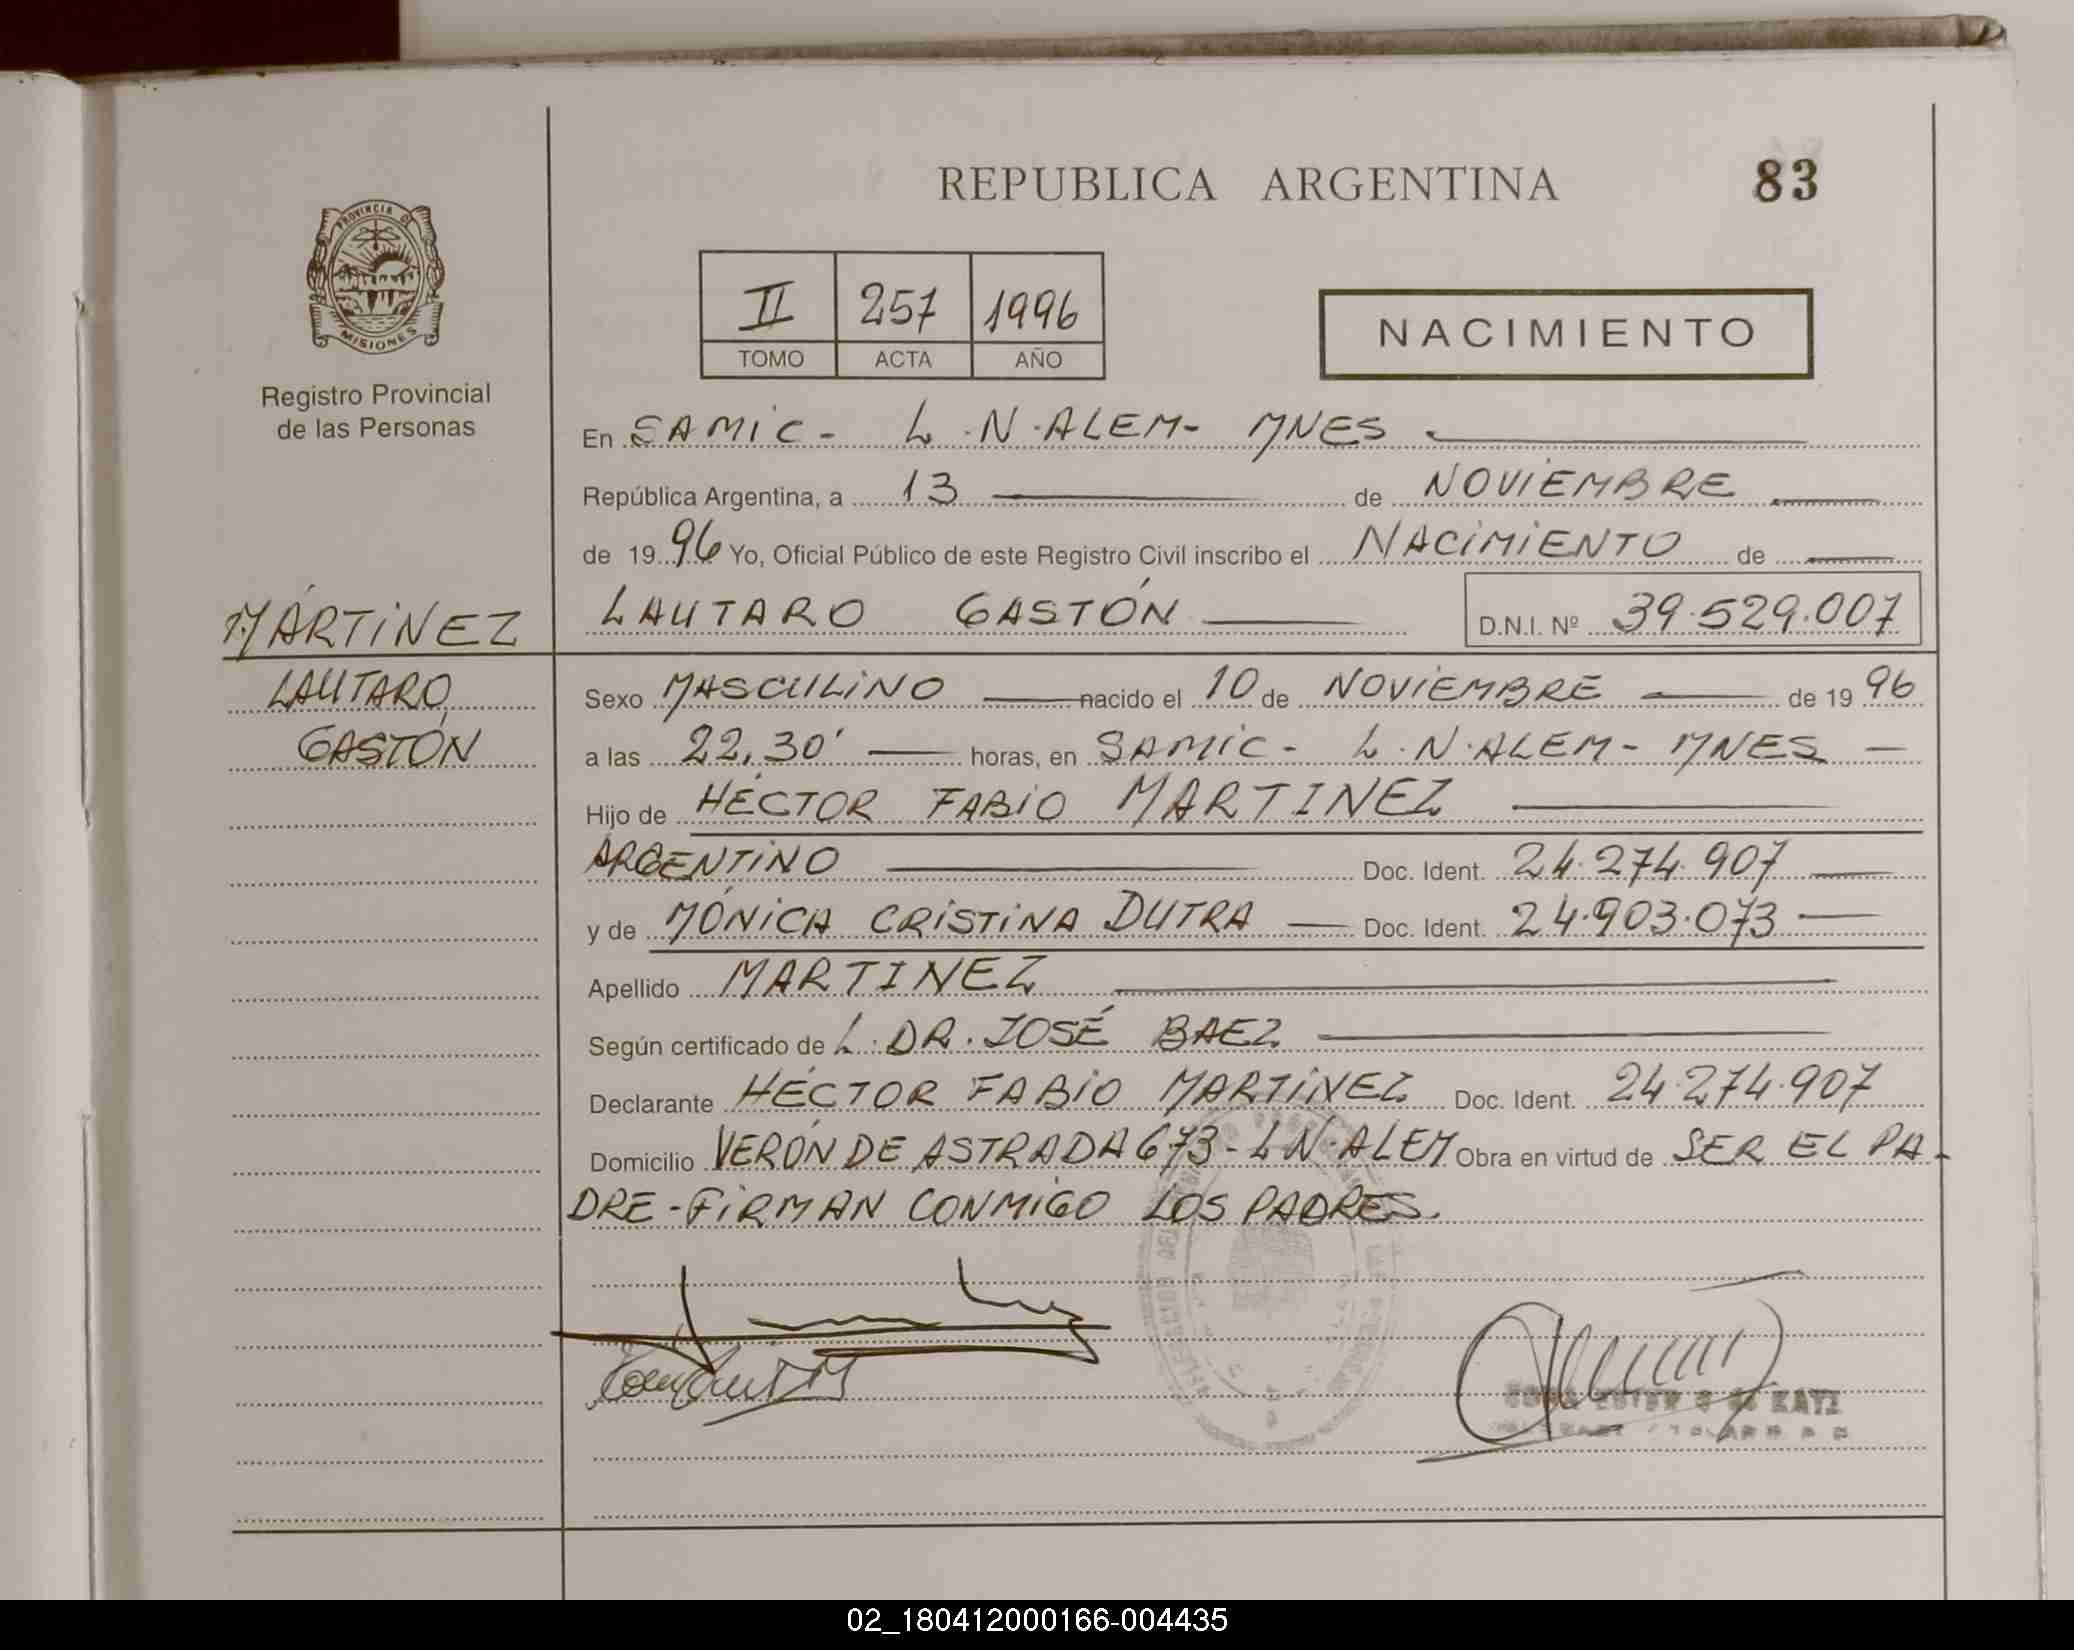 REPUBLICA ARGENTINA
83
PROVINCIA DE
MISIONES
Registro Provincial
de las Personas
II 257 1996
TOMO ACTA AÑO
NACIMIENTO
En SAMIC - L.N.ALEM - MNES
República Argentina, a 13 de NOVIEMBRE
de 1996 Yo, Oficial Público de este Registro Civil inscribo el NACIMIENTO de
MARTINEZ
LAUTARO GASTÓN
D.N.I. Nº 39.529.007
LAUTARO
GASTÓN
Sexo MASCULINO nacido el 10 de NOVIEMBRE de 1996
a las 22,30' horas, en SAMIC - L.N.ALEM - MNES
Hijo de HÉCTOR FABIO MARTINEZ
ARGENTINO Doc. Ident. 24.274.907
y de MÓNICA CRISTINA DUTRA Doc. Ident. 24.903.073
Apellido MARTINEZ
Según certificado de L. DR. JOSÉ BAEZ
Declarante HÉCTOR FABIO MARTINEZ Doc. Ident. 24.274.907
Domicilio VERÓN DE ASTRADA 673 - L N. ALEM Obra en virtud de SER EL PA-
DRE - FIRMAN CONMIGO LOS PADRES.
KATZ
02_180412000166-004435